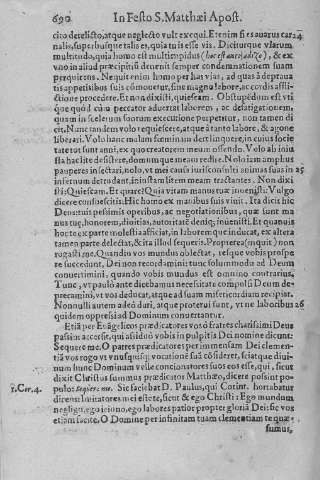 690 In Festo S. Matthæi Apost.
cito delictо, atque neglecto vult exequi. Etenim si es auarus car 24
nalis, superbusque talis es, quia tu is esse vis. Diciturque vlarum,
multitudo, quia homo cit multimpidus (hoc est ) & ex
vno in aliud præcipitiũ deuenit semper condemnationem suam
perquirens. Nequit enim homo per has vias, ad quas à deprauа
tis appetitibus suis cõmouetur, sine magno labore, ac cordis afflictione
procedere. Et non dixisti, quiescam. Obstupédum est vti
que quòd cùm peccator aduertat laborem, ac defatigationem,
quam in scelerum suorum executione perpetitur, non tamen di
cit. Nunc tandem volo requiescere, atque à tanto labore, & agone
liberari. Volo hanc malam fœminam derelinquere, in cuius societate
tot sunt anni, ex quo creatorem meum offendo. Volo ab iniusta
hac lite desistere, domumque meam redire. Nolo iam amplius
pauperes insectari, nolo, vt mei causa iurisconsulti animas suas in 25
infernum detrudant, iniustam litem meam tractantes. Non dixisti:
Quiescam. Et quare? Quia vitam manus tuæ inuenisti. Vulgo
dicere consueuistis: Hic homo ex manibus suis viuit. Ita dicit hic
Deus: tuis pessimis operibus, ac negotiationibus, quæ sunt manus
tuę, honorem, diuitias, autoritatē denique inuenisti. Et quamuis
hoc te ex parte molestia afficiat, in laborem que inducat, ex altera
tamen parte delectat, & ita illud sequeris. Propterea (inquit) non
rogasti me. Quando vos mundus oblectat, resque vobis prospere
succedunt, Dei non recordamini: tunc solummodo ad Deum
conuertimini, quando vobis mundus est omnino contrarius.
Tunc, vt paulò ante dicebamus necessitate compulsi Deum deprecamini,
vt vos deducat, atque ad suam misericordiam recipiat.
Nonnulli autem adeò duri, atque proterui sunt, vt ne laboribus 26
quidem oppressi ad Dominum conuertantur.
Etiā per Euāgelicos prædicatores vos ò fratres charissimi Deus
passim accersit, qui assiduò vobis in pulpitis Dei nomine dicunt:
Sequere me. O patres prædicatores per immensam Dei clementiā
vos rogo vt vnusquisque vocatione suā cōsideret, sciatque diuinum
hunc Dominum velle concionatores suos eos esse, qui, sicut
dixit Christus summus prædicator Matthæo, dicere possint populo:
Sequere me. Sic faciebat D. Paulus, qui Corint. hortabatur
1. Cor. 4.
dicens: Imitatores mei estote, sicut & ego Christi: Ego mundum
negligo, ego ieiuno, ego labores patior propter gloriã Dei: sic vos
etiam facite. O Domine per infinitam tuam clementiam te quæsumus,